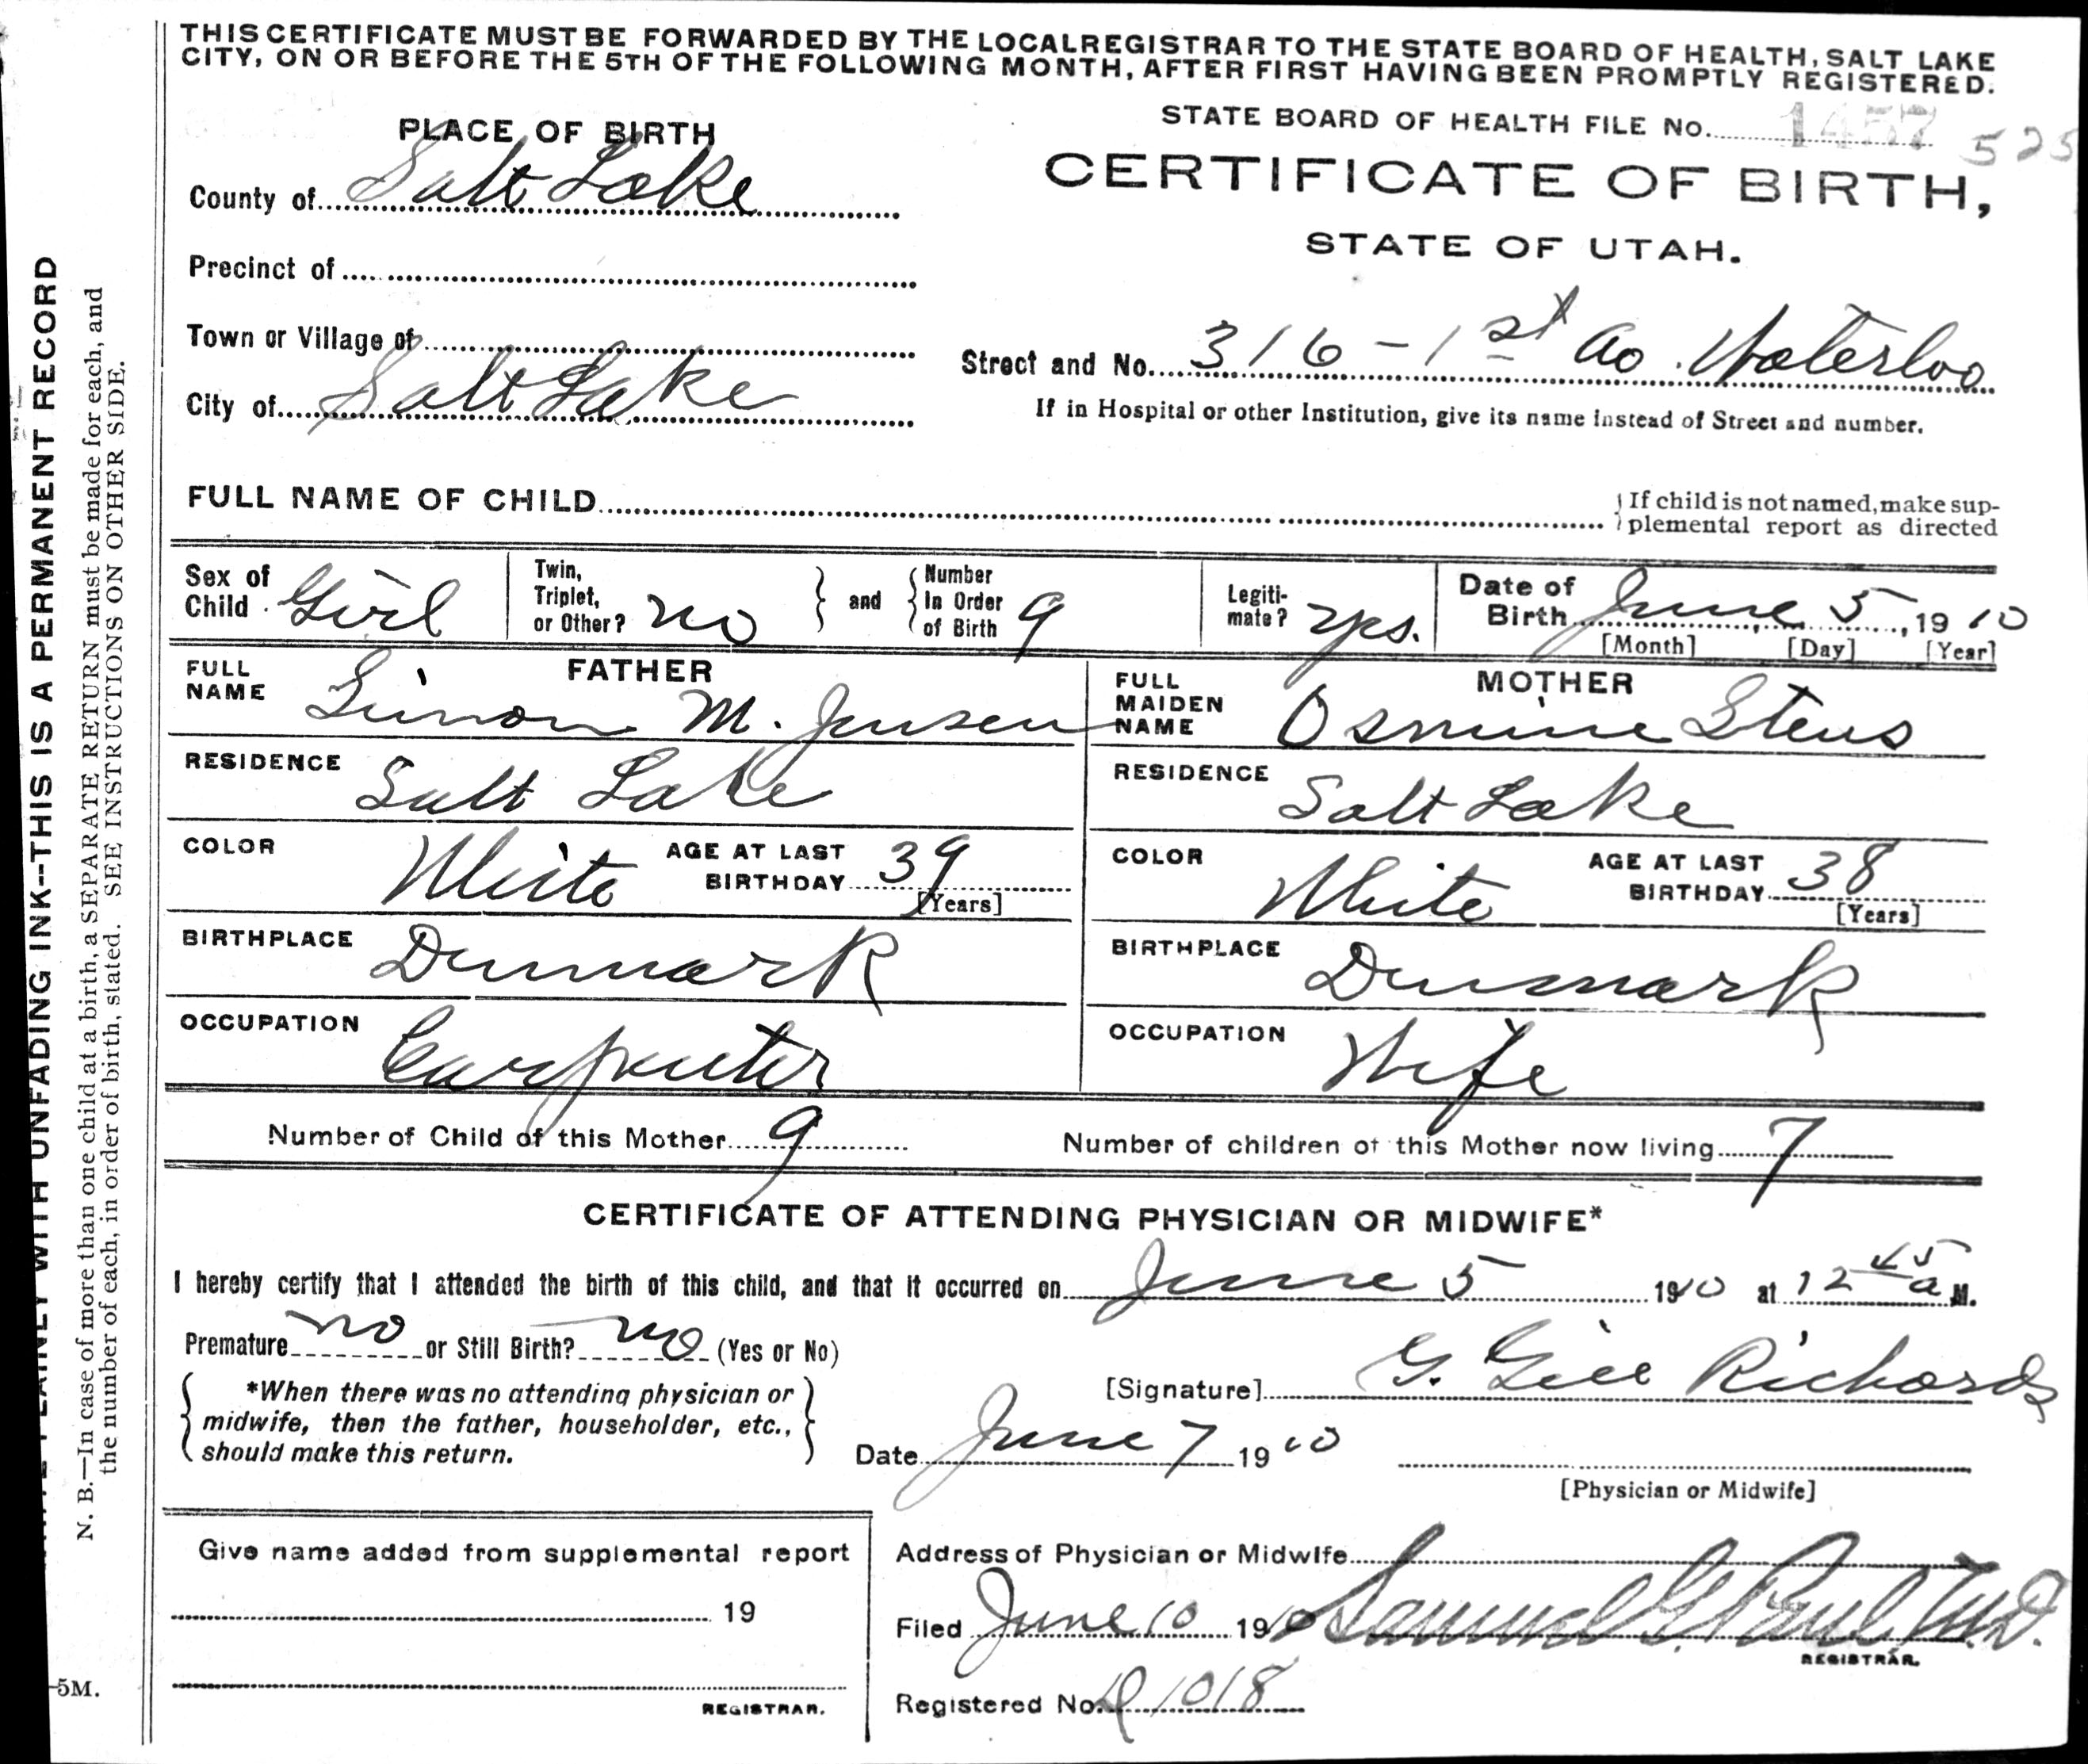 THIS CERTIFICATE MUST BE FORWARDED BY THE LOCAL REGISTRAR TO THE STATE BOARD OF HEALTH, SALT LAKE
CITY, ON OR BEFORE THE 5TH OF THE FOLLOWING MONTH, AFTER FIRST HAVING BEEN PROMPTLY REGISTERED.
STATE BOARD OF HEALTH FILE No. 1457 525
PLACE OF BIRTH
CERTIFICATE OF BIRTH,
STATE OF UTAH.
County of Salt Lake
Precinct of
Town or Village of
City of Salt Lake
Street and No. 316 - 1st Waterloo
If in Hospital or other Institution, give its name instead of Street and number.
FULL NAME OF CHILD
{If child is not named, make sup-
plemental report as directed
Sex of Child Girl
Twin, Triplet, or Other? no } and { Number In Order of Birth 9
Legiti-mate? yes.
Date of Birth June 5, 1910
[Month] [Day] [Year]
FATHER
FULL NAME Simon M. Jensen
RESIDENCE Salt Lake
COLOR White AGE AT LAST BIRTHDAY 39
[Years]
BIRTHPLACE Denmark
OCCUPATION Carpenter
MOTHER
FULL MAIDEN NAME Osmine Stens
RESIDENCE Salt Lake
COLOR White AGE AT LAST BIRTHDAY 38
[Years]
BIRTHPLACE Denmark
OCCUPATION Wife
Number of Child of this Mother 9 Number of children of this Mother now living 7
CERTIFICATE OF ATTENDING PHYSICIAN OR MIDWIFE*
I hereby certify that I attended the birth of this child, and that it occurred on June 5 1910 at 12 45 a M.
Premature no or Still Birth? no (Yes or No)
{*When there was no attending physician or
midwife, then the father, householder, etc.,
should make this return.}
[Signature] G. Gill Richards
Date June 7 1910
[Physician or Midwife]
Give name added from supplemental report
19
REGISTRAR.
Address of Physician or Midwife
Filed June 10 1910 Samuel G. Paul M.D.
REGISTRAR.
Registered No. 1018
WITH UNFADING INK--THIS IS A PERMANENT RECORD
N. B.—In case of more than one child at a birth, a SEPARATE RETURN must be made for each, and
the number of each, in order of birth, stated. SEE INSTRUCTIONS ON OTHER SIDE.
5M.